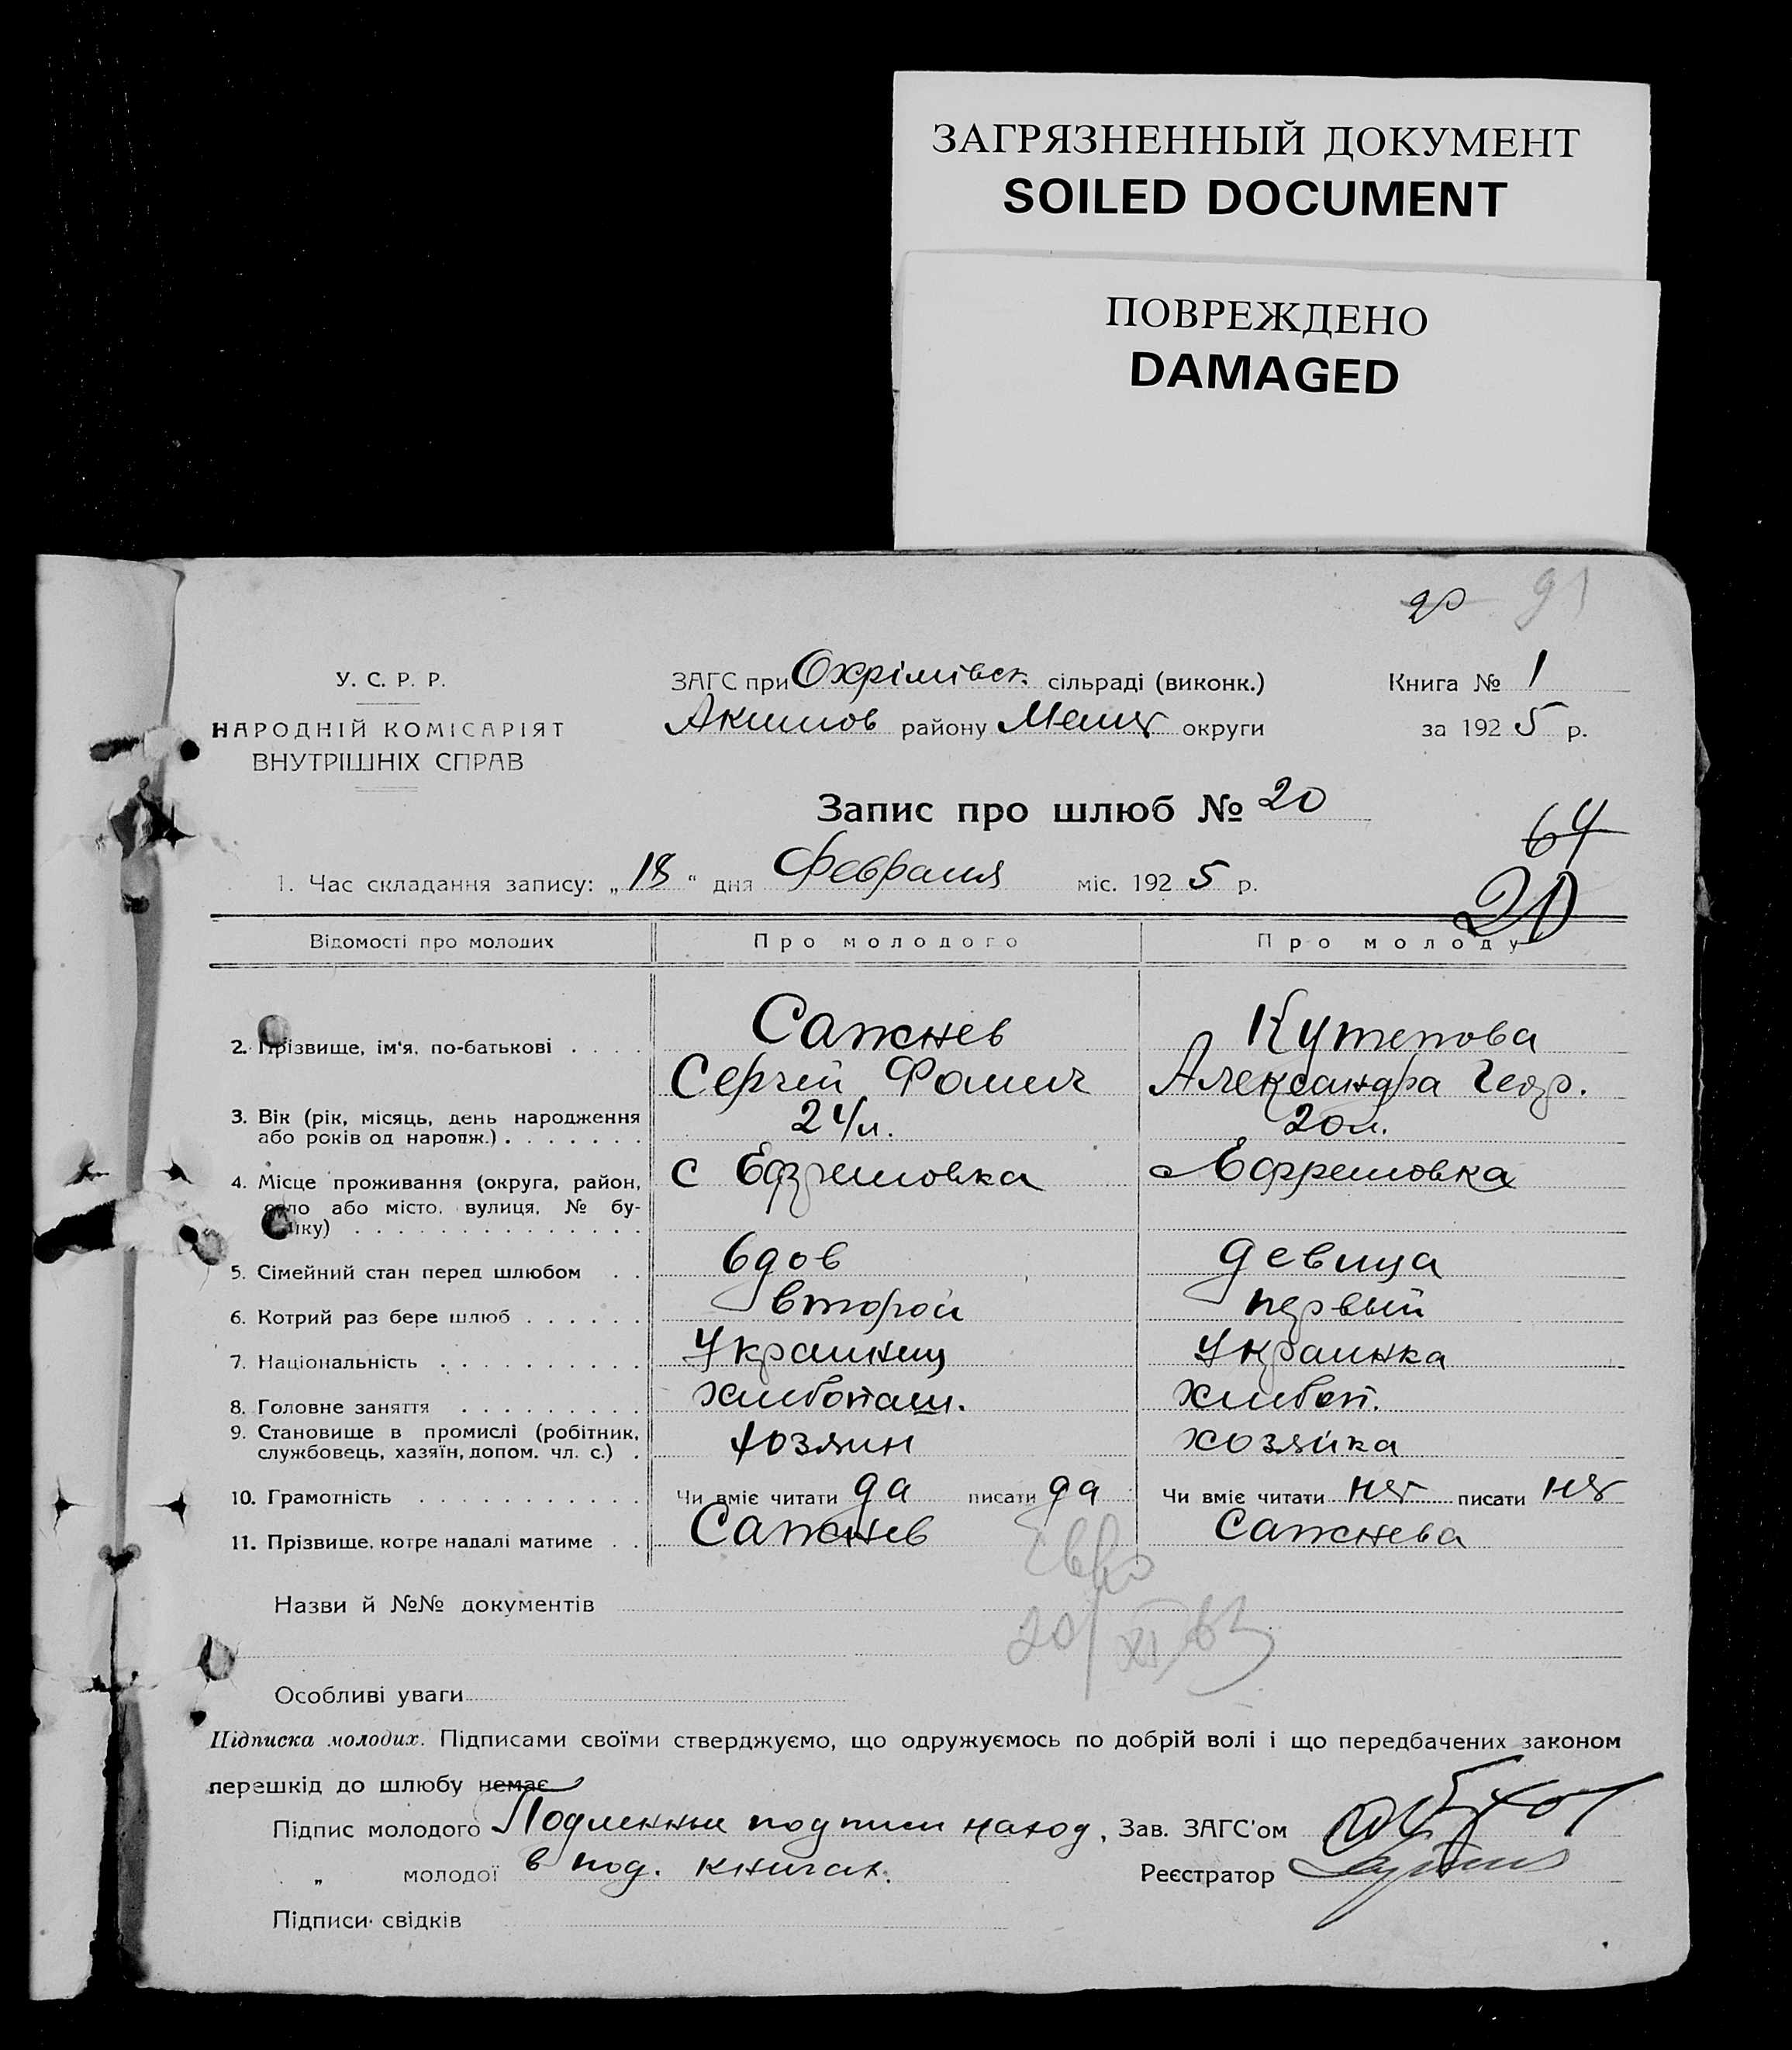 ЗАГРЯЗНЕННЫЙ ДОКУМЕНТ
SOILED DOCUMENT
ПОВРЕЖДЕНО
DAMAGED
90 91
У. С. Р. Р.
НАРОДНІЙ КОМІСАРІЯТ
ВНУТРІШНІХ СПРАВ
ЗАГС при Охрімівск. сільраді (виконк.)
Акимов району Мелит округи
Книга № 1
за 1925 р.
Запис про шлюб № 20
64
20
1. Час складання запису: „18“ дня Февраля міс. 1925 р.
Відомості про молодих Про молодого Про молоду
2. Прізвище, ім'я, по-батькові . . . . Сажнев Кутепова
Сергей Фомич Александра Геор.
3. Вік (рік, місяць, день народження 24 л. 20 л.
або років од народж.) . . . . . . .
4. Місце проживання (округа, район, с Ефремовка с Ефремовка
село або місто, вулиця, № бу-
динку) . . . . . . . . . . . . . .
5. Сімейний стан перед шлюбом . . вдов девица
6. Котрий раз бере шлюб . . . . . . второй первый
7. Національність . . . . . . . . . . Украинец Украинка
8. Головне заняття . . . . . . . . . хлибопаш. хлибоп.
9. Становище в промислі (робітник, хозяин хозяйка
службовець, хазяїн, допом. чл. с.) .
10. Грамотність . . . . . . . . . . . Чи вміє читати да писати да Чи вміє читати нет писати нет
11. Прізвище, котре надалі матиме . . Сажнев Сажнева
Назви й №№ документів
20/XI 63
Особливі уваги
Підписка молодих. Підписами своїми стверджуємо, що одружуємось по добрій волі і що передбачених законом
перешкід до шлюбу немає
Підпис молодого Подленные подписи наход, Зав. ЗАГС'ом
„ молодої в под. книгах. Реєстратор
Підписи свідків